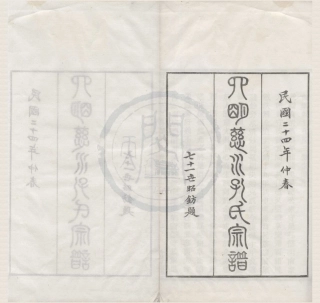 民國二十四年仲春
四明慈水孔氏宗譜
七十一世昭題